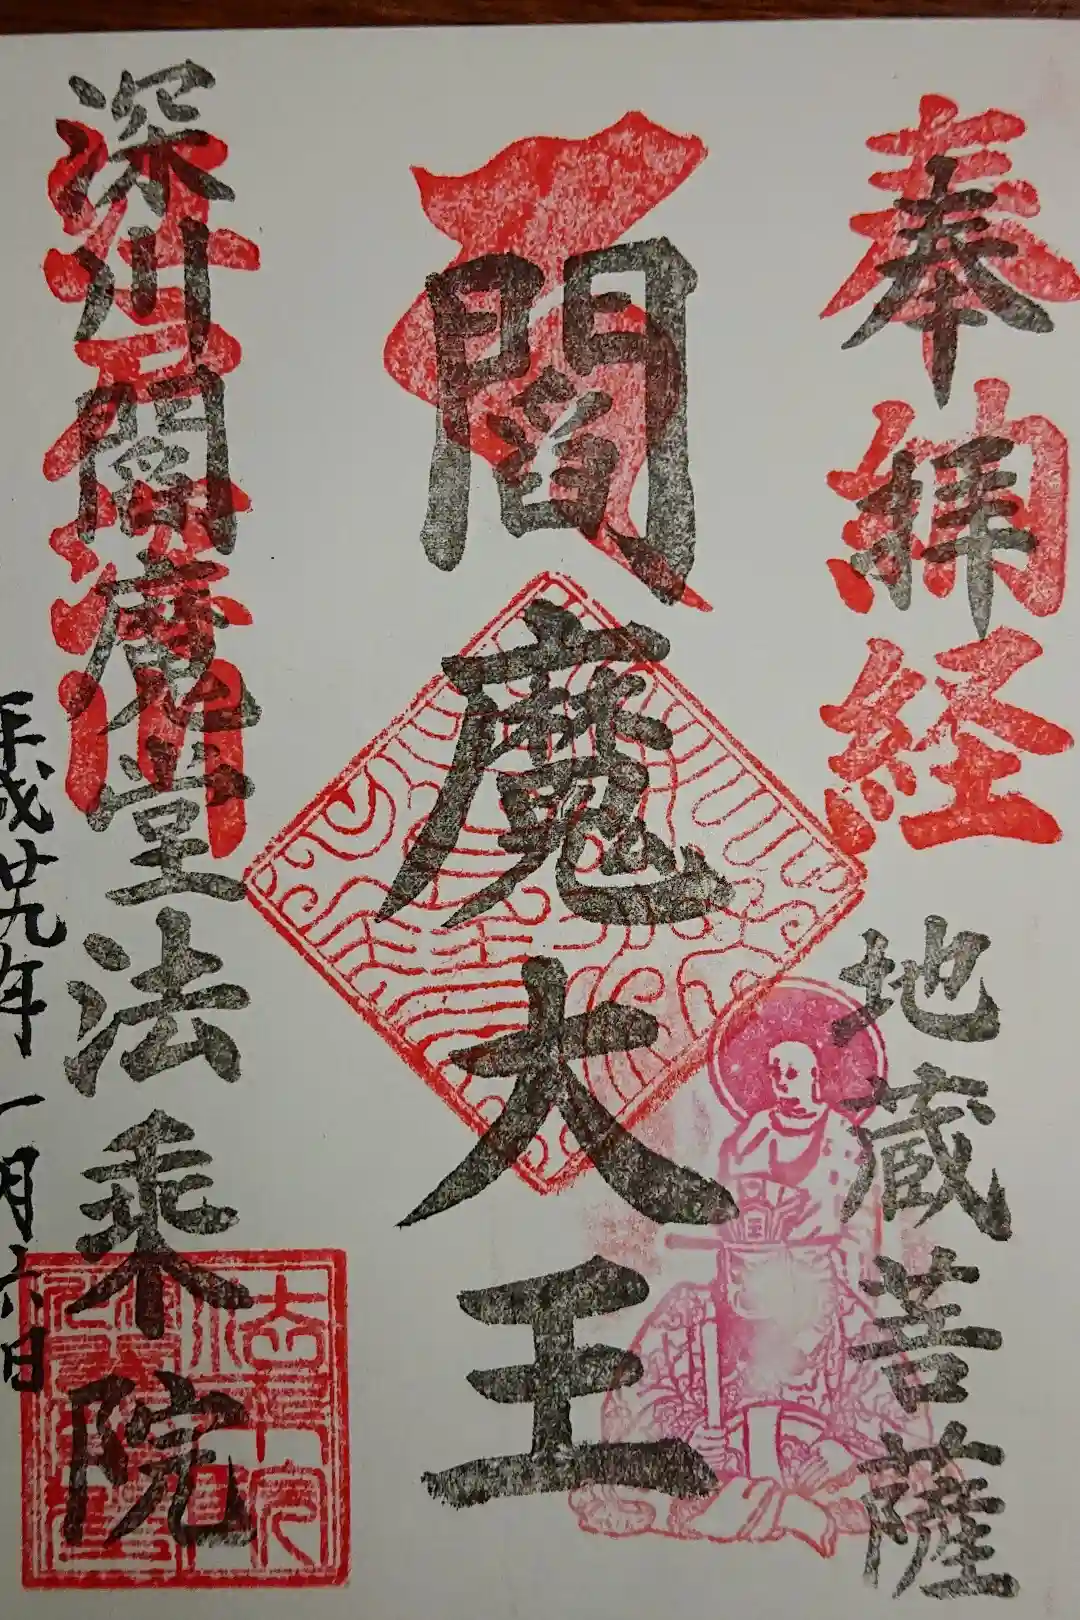 奉納経
奉拝
地蔵菩薩
閻魔大王
深川閻魔堂法乗院
平成廿九年一月六日